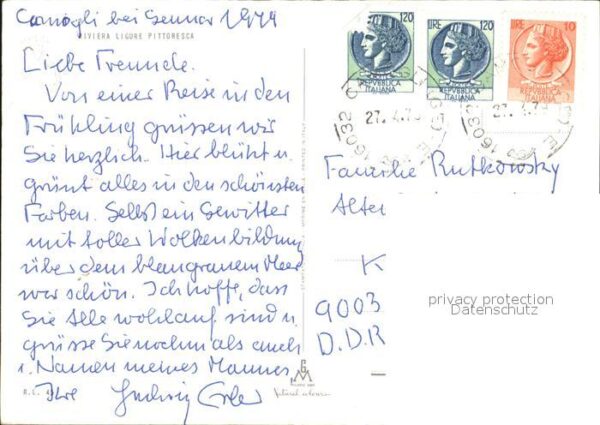 Camogli bei Genua 1979
RIVIERA LIGURE PITTORESCA
Liebe Freunde.
Von einer Reise in den
Frühling grüssen wir
Sie herzlich. Hier blüht u.
grünt alles in den schönsten
Farben. Selbst ein Gewitter
mit toller Wolkenbildung
über dem blaugrauen Meer
war schön. Ich hoffe, dass
Sie Alle wohlauf sind u.
grüsse Sie nochmals auch
i. Namen meines Mannes,
Ihre
120
LIRE 120
LIRE 10
REPVBBLICA
ITALIANA
REPVBBLICA
ITALIANA
REPVBBLICA
ITALIANA
16032
27.4.79
16032
Familie Rutkowsky
K
9003
D.D.R
privacy protection
Datenschutz